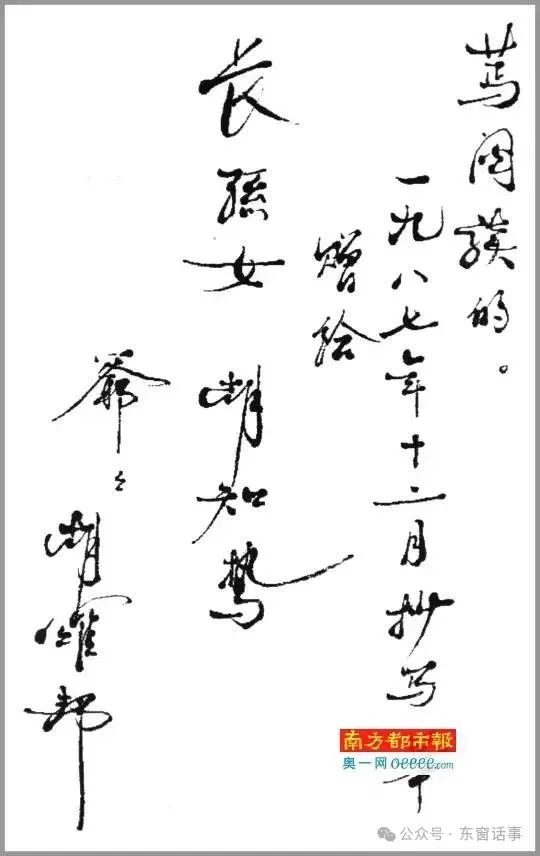 的。
一九八七年十二月抄写
赠给
长孫女 胡知鸷
爺々 胡耀邦
南方都市報
奥一网 oeeee.com
公众号·东窗话事